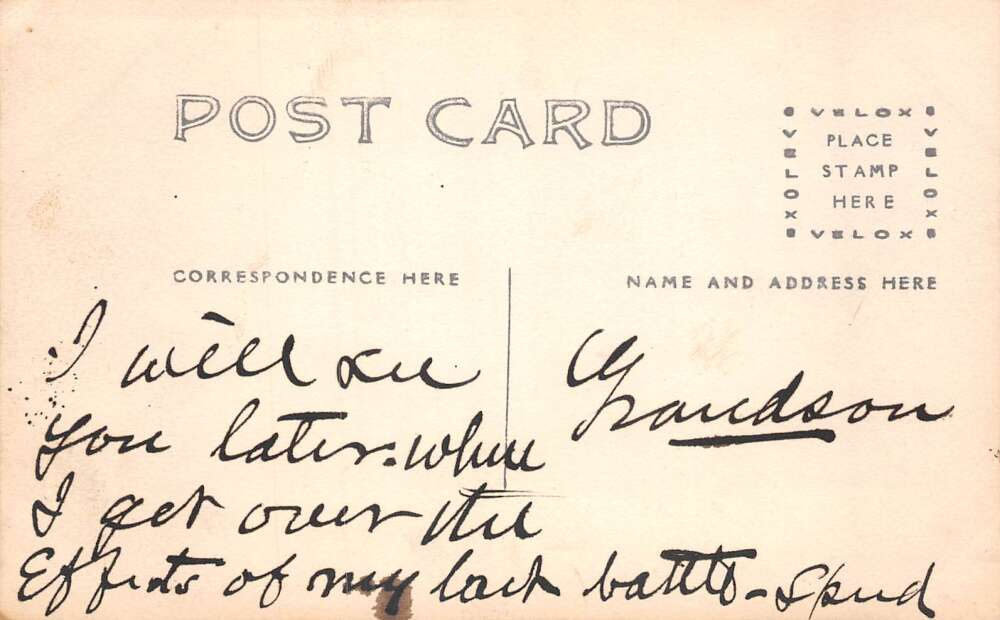 POST CARD
VELOX
VELOX
PLACE
STAMP
HERE
VELOX
VELOX
CORRESPONDENCE HERE
NAME AND ADDRESS HERE
I will see
you later. when
I get over the
Effects of my last battle - Spud
Grandson